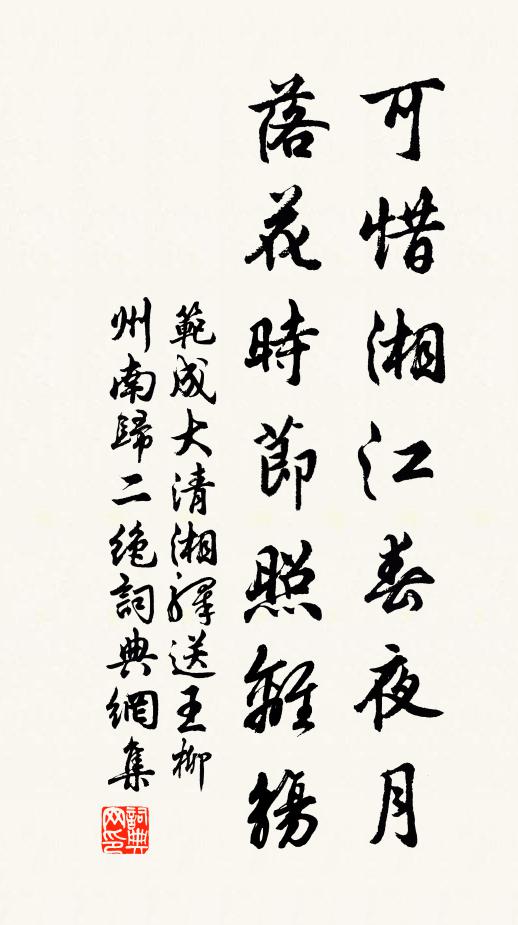 可惜湘江春夜月
落花時節照離觴
範成大清湘驛送王柳
州南歸二絕詞典網集
詞典
网印